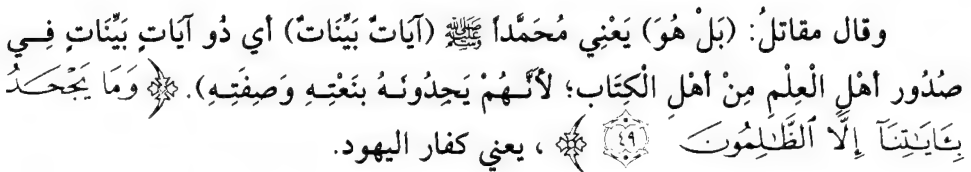 وقال مقاتلُ: (بَلْ هُوَ) يَعْنِي مُحَمَّداً ﷺ (آيَاتٌ بَيِّنَاتٌ) أي ذُو آيَاتٍ بَيِّنَاتٍ فِي
صُدُورِ أهْلِ الْعِلْمِ مِنْ أهْلِ الْكِتَاب؛ لأَنَّهُمْ يَجِدُونَهُ بنَعْتِهِ وَصِفَتِهِ). ﴿ وَمَا يَجْحَدُ
بِـَٔايَـٰتِنَآ إِلَّا ٱلظَّـٰلِمُونَ ٤٩ ﴾ ، يعني كفار اليهود.